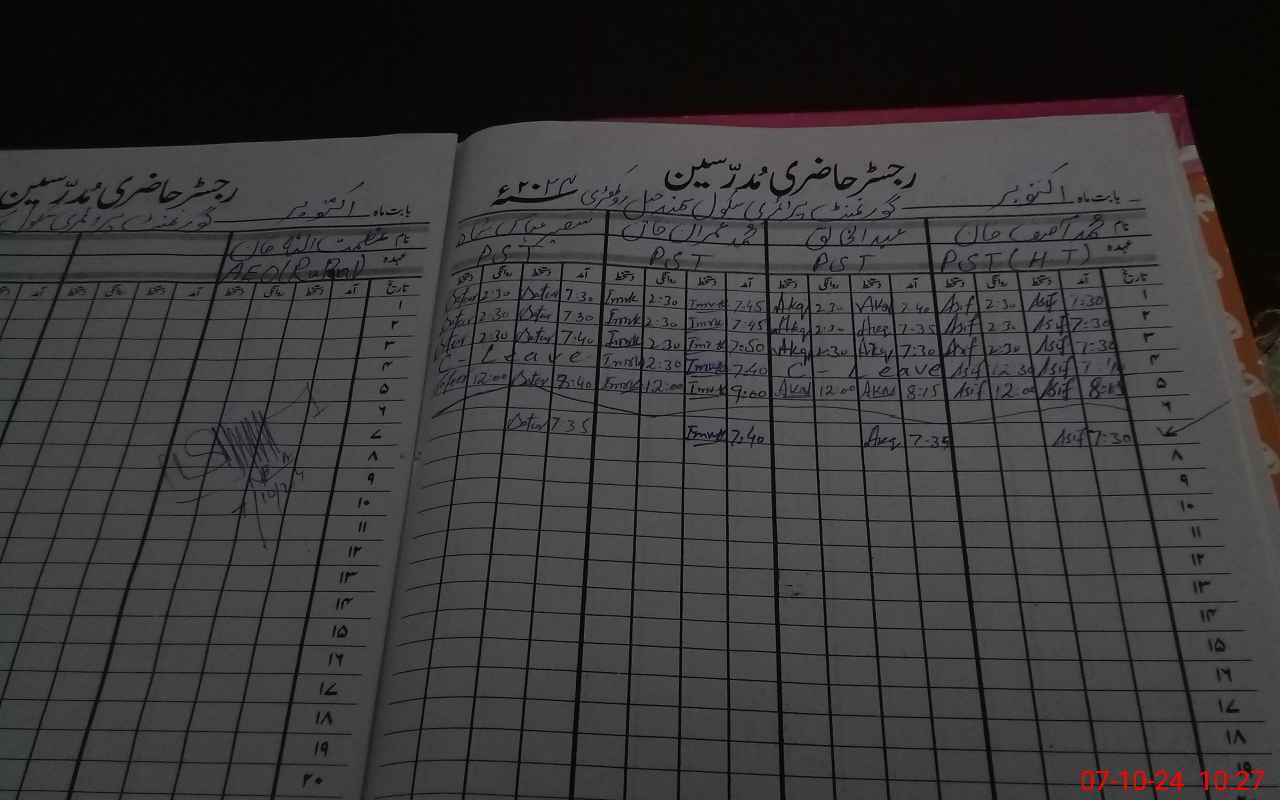 رجسٹر حاضری مُدرّسین
بابت ماہ اکتوبر گورنمنٹ پرائمری سکول
نام عظمت اللہ خان
عہدہ AEO (Rural)
تاریخ آمد دستخط روانگی دستخط آمد دستخط
۱
۲
۳
۴
۵
۶
۷
۸
۹
۱۰
۱۱
۱۲
۱۳
۱۴
۱۵
۱۶
۱۷
۱۸
۱۹
۲۰
رجسٹر حاضری مُدرّسین
بابت ماہ اکتوبر گورنمنٹ پرائمری سکول ۲۰۲۴ء
نام محمد آصف خان عبدالخالق محمد عمران خان
عہدہ PST (HT) PST PST PST
تاریخ آمد دستخط روانگی دستخط آمد دستخط روانگی دستخط آمد دستخط روانگی دستخط آمد دستخط روانگی دستخط
۱ 7:30 Asif 2:30 Asif 7:40 Akq 2:30 Akq 7:45 Imrk 2:30 Imrk 7:30 2:30
۲ 7:30 Asif 2:30 Asif 7:35 Akq 2:30 Akq 7:45 Imrk 2:30 Imrk 7:30 2:30
۳ 7:30 Asif 2:30 Asif 7:30 Akq 2:30 Akq 7:50 Imrk 2:30 Imrk 7:40 2:30
۴ Asif 12:30 Asif C - Leave 7:40 Imrk 2:30 Imrk C - Leave
۵ Asif 12:00 Asif 8:15 Akq 12:00 Akq 9:00 Imrk 12:00 Imrk 8:40 12:00
۶
۷ 7:30 Asif 7:35 Akq 7:40 Imrk 7:35
۸
۹
۱۰
۱۱
۱۲
۱۳
۱۴
۱۵
۱۶
۱۷
۱۸
۱۹
07-10-24 10:27